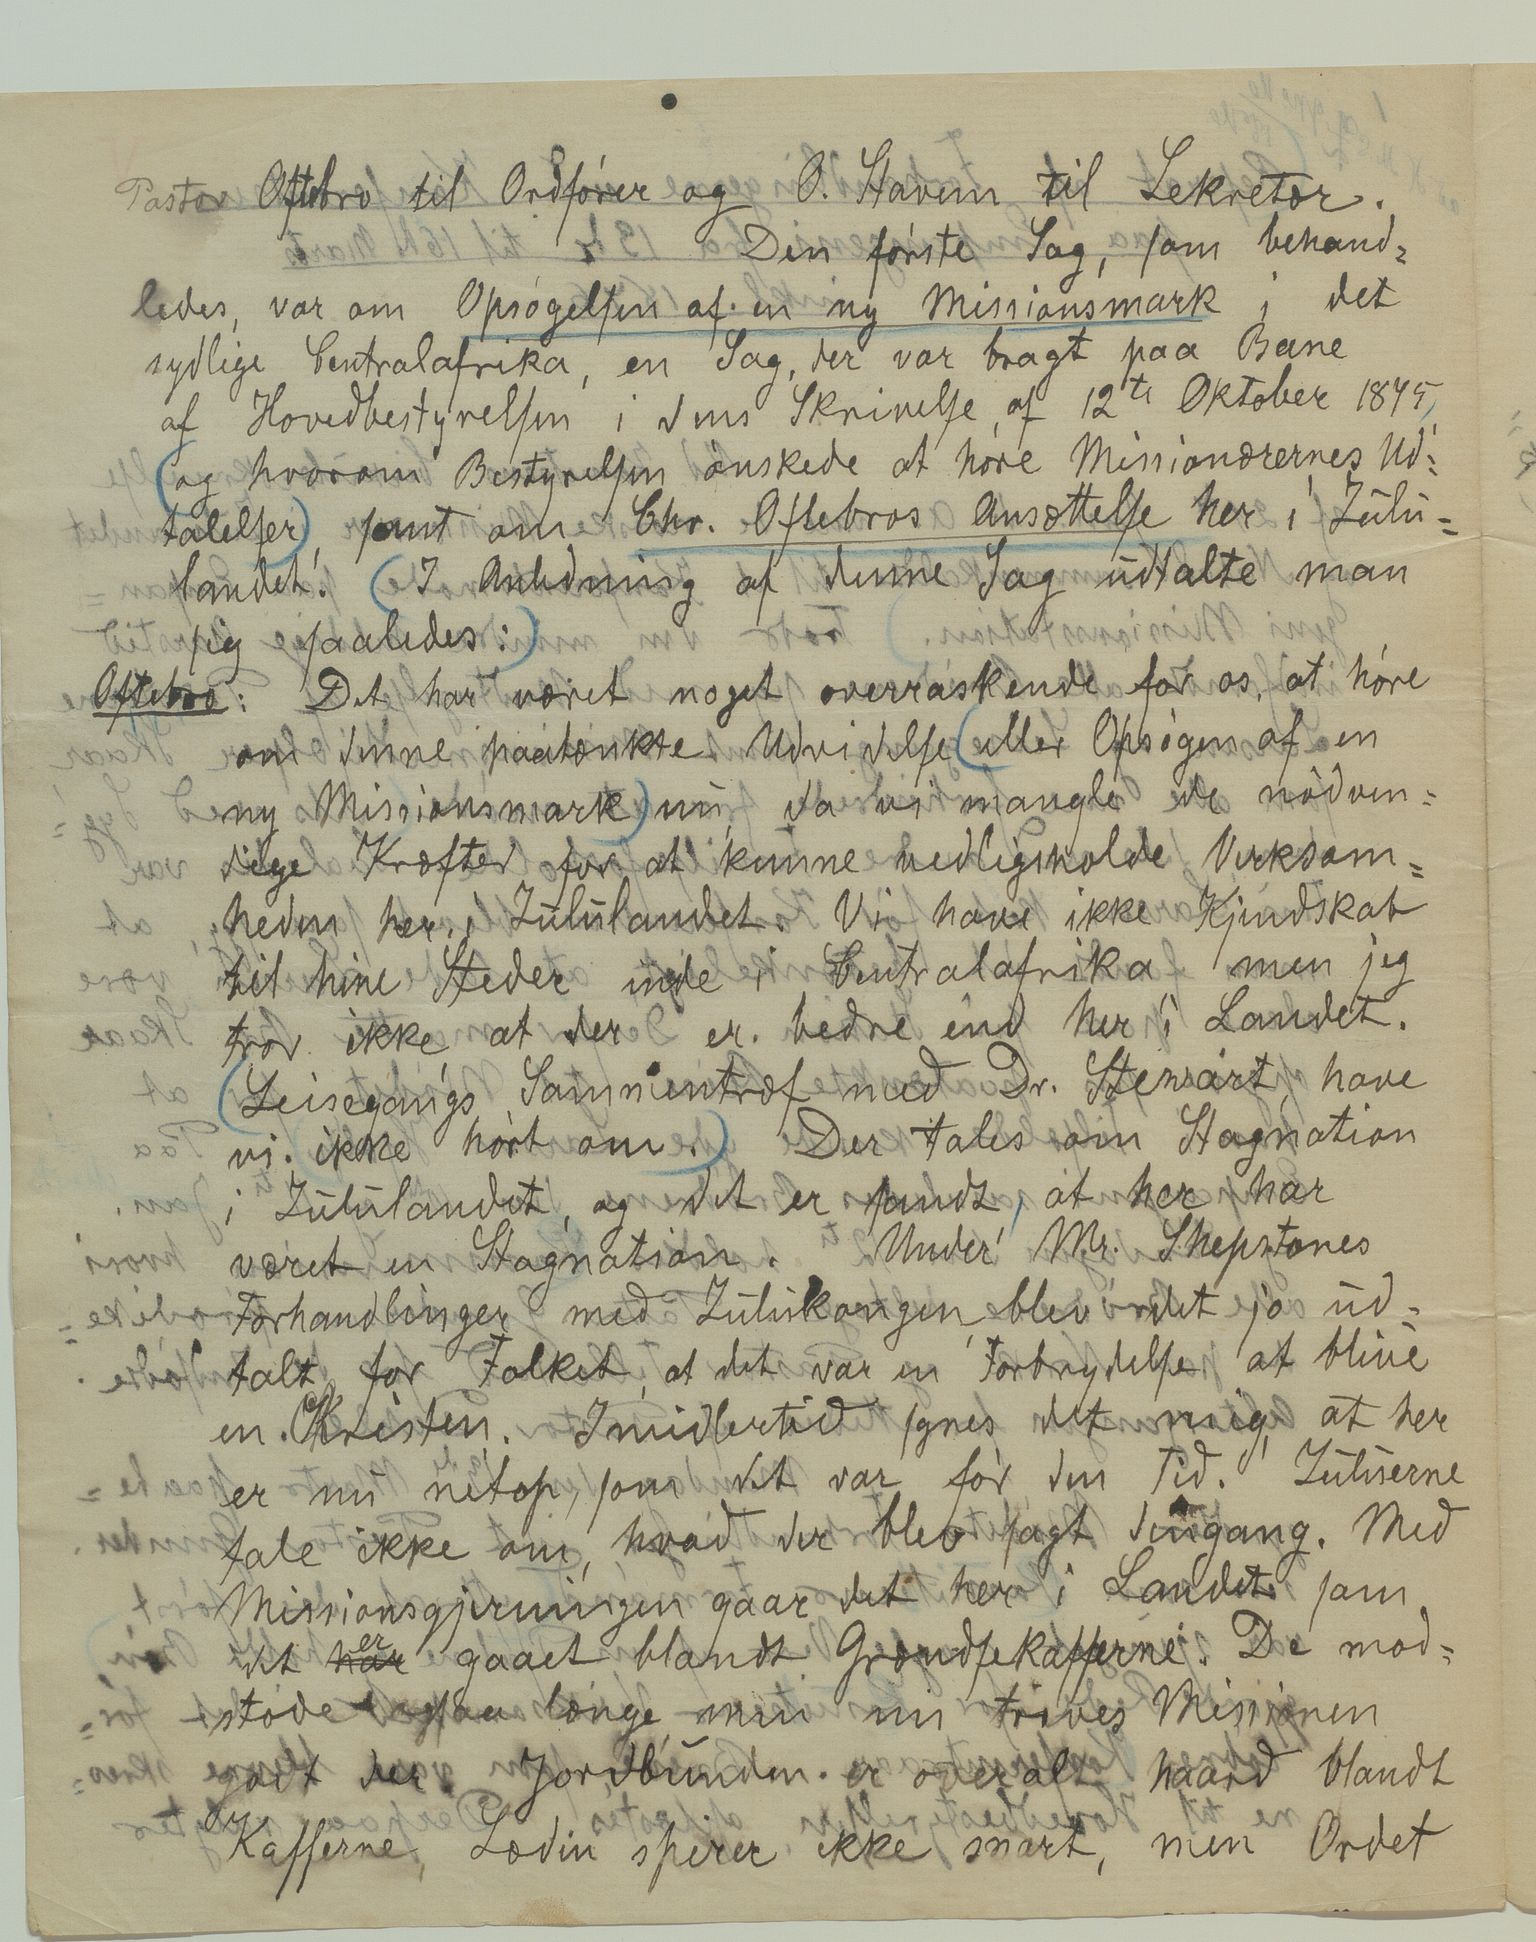 Pastor Oftebro til Ordfører og O. Stavem til Sekretær.
Den første Sag, som behand=
ledes, var om Opsøgelsen af en ny Missionsmark i det
sydlige Centralafrika, en Sag, der var bragt paa Bane
af Hovedbestyrelsen i dens Skrivelse af 12te Oktober 1875,
(og hvorom Bestyrelsen ønskede at høre Missionærernes Ud=
talelser), samt om Chr. Oftebros Ansættelse her i Zulu=
landet. (I Anledning af denne Sag udtalte man
sig saaledes:)
Oftebro: Det har været noget overraskende for os, at høre
om denne paatænkte Udvidelse (eller Opsøgen af en
ny Missionsmark) nu, da vi mangle de nødven=
dige Kræfter for at kunne vedligeholde Virksom=
heden her i Zululandet. Vi have ikke Kjendskab
til hine Steder inde i Centralafrika men jeg
tror ikke at der er bedre end her i Landet.
(Leisegangs Sammentræf med Dr. Stewart, have
vi ikke hørt om.) Der tales om Stagnation
i Zululandet, og det er sandt, at her har
været en Stagnation. Under Mr. Shepstones
Forhandlinger med Zulukongen, blev det jo ud=
talt for Folket, at det var en Forbrydelse at blive
en Kristen. Imidlertid synes det mig, at her
er nu netop, som det var før den Tid. Zuluerne
tale ikke om, hvad der blev sagt dengang. Med
Missionsgjerningen gaar det her i Landet som
det har er gaaet blandt Grændsekafferne. De mod=
stode saa længe men nu trives Missionen
godt der. Jordbunden er overalt haard blandt
Kafferne, Sæden spirer ikke snart, men Ordet